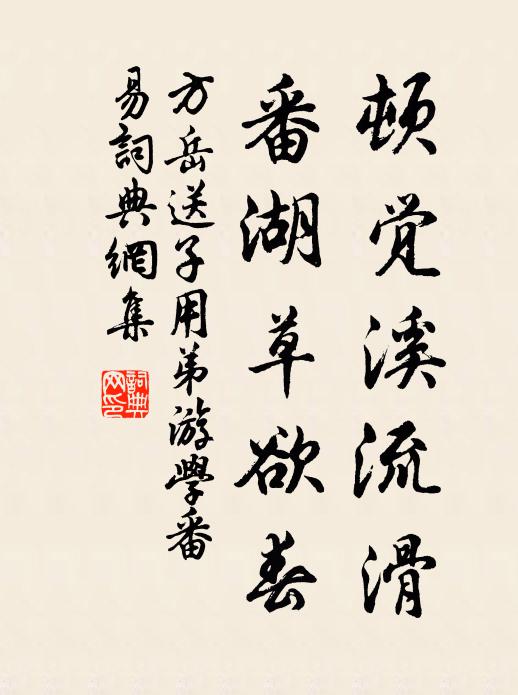 頓觉溪流滑
番湖草欲春
方岳送子用弟游學番
易詞典網集
詞典
网印